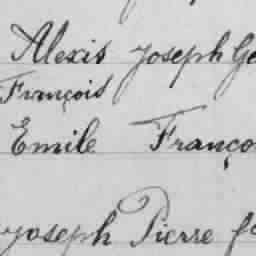 Alexis Joseph Ge
François
Emile Franço
Joseph Pierre